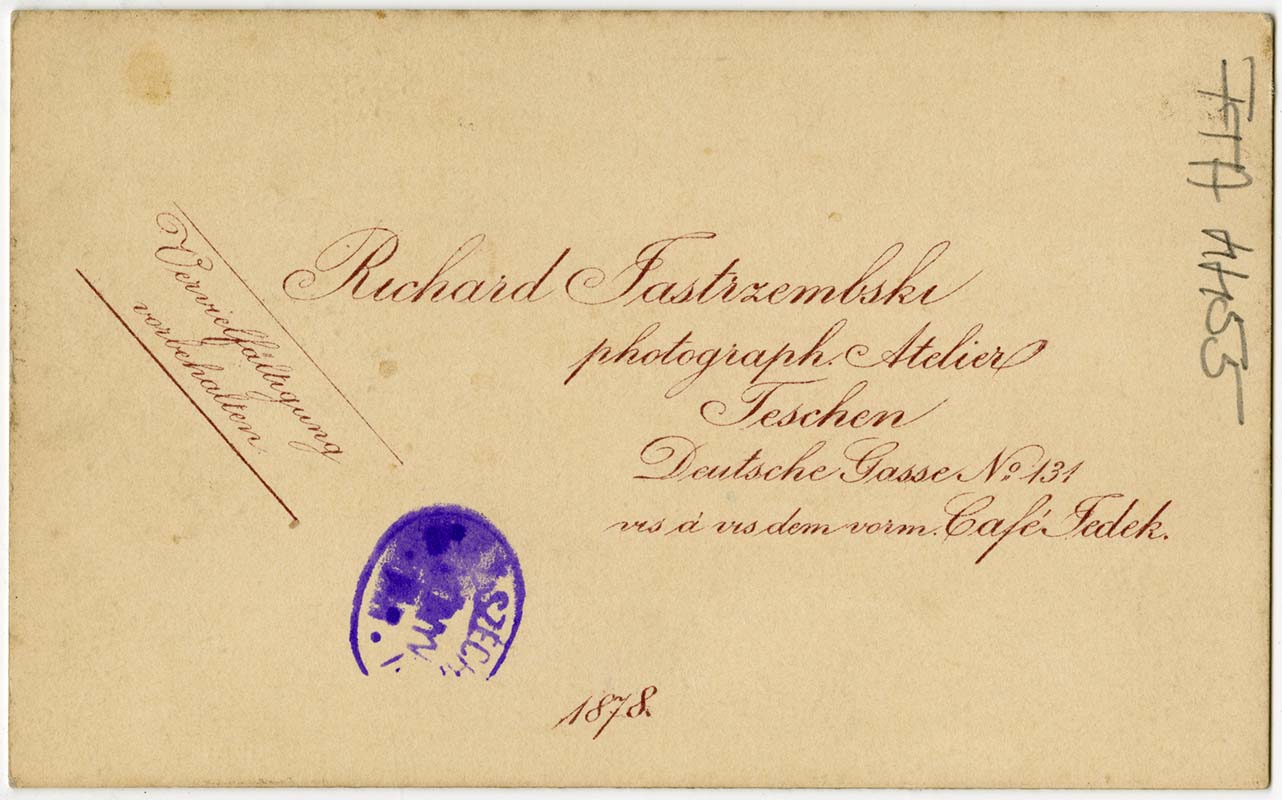 Vervielfältigung
vorbehalten.
Richard Jastrzembski
photograph. Atelier
Teschen
Deutsche Gasse No. 131
vis á vis dem vorm. Café Fedek.
1878.
FTA 4455